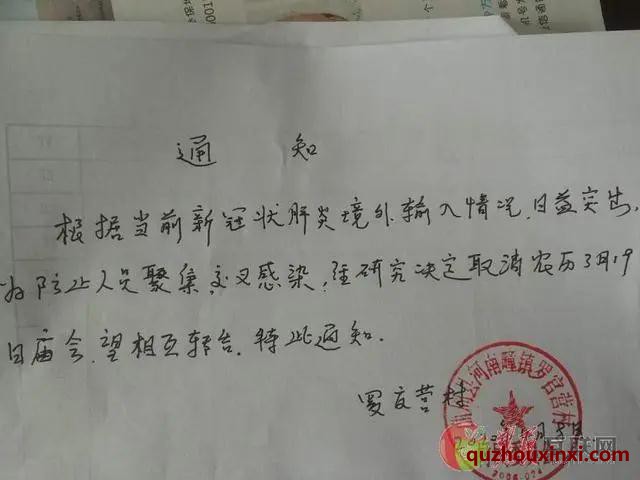 通 知
根据当前新冠状肺炎境外输入情况,日益突出,
为防止人员聚集,交叉感染,经研究决定取消农历3月19
日庙会,望相互转告.特此通知.
罗官营村
河南疃镇罗官营村
互联网
quzhouxinxi.com